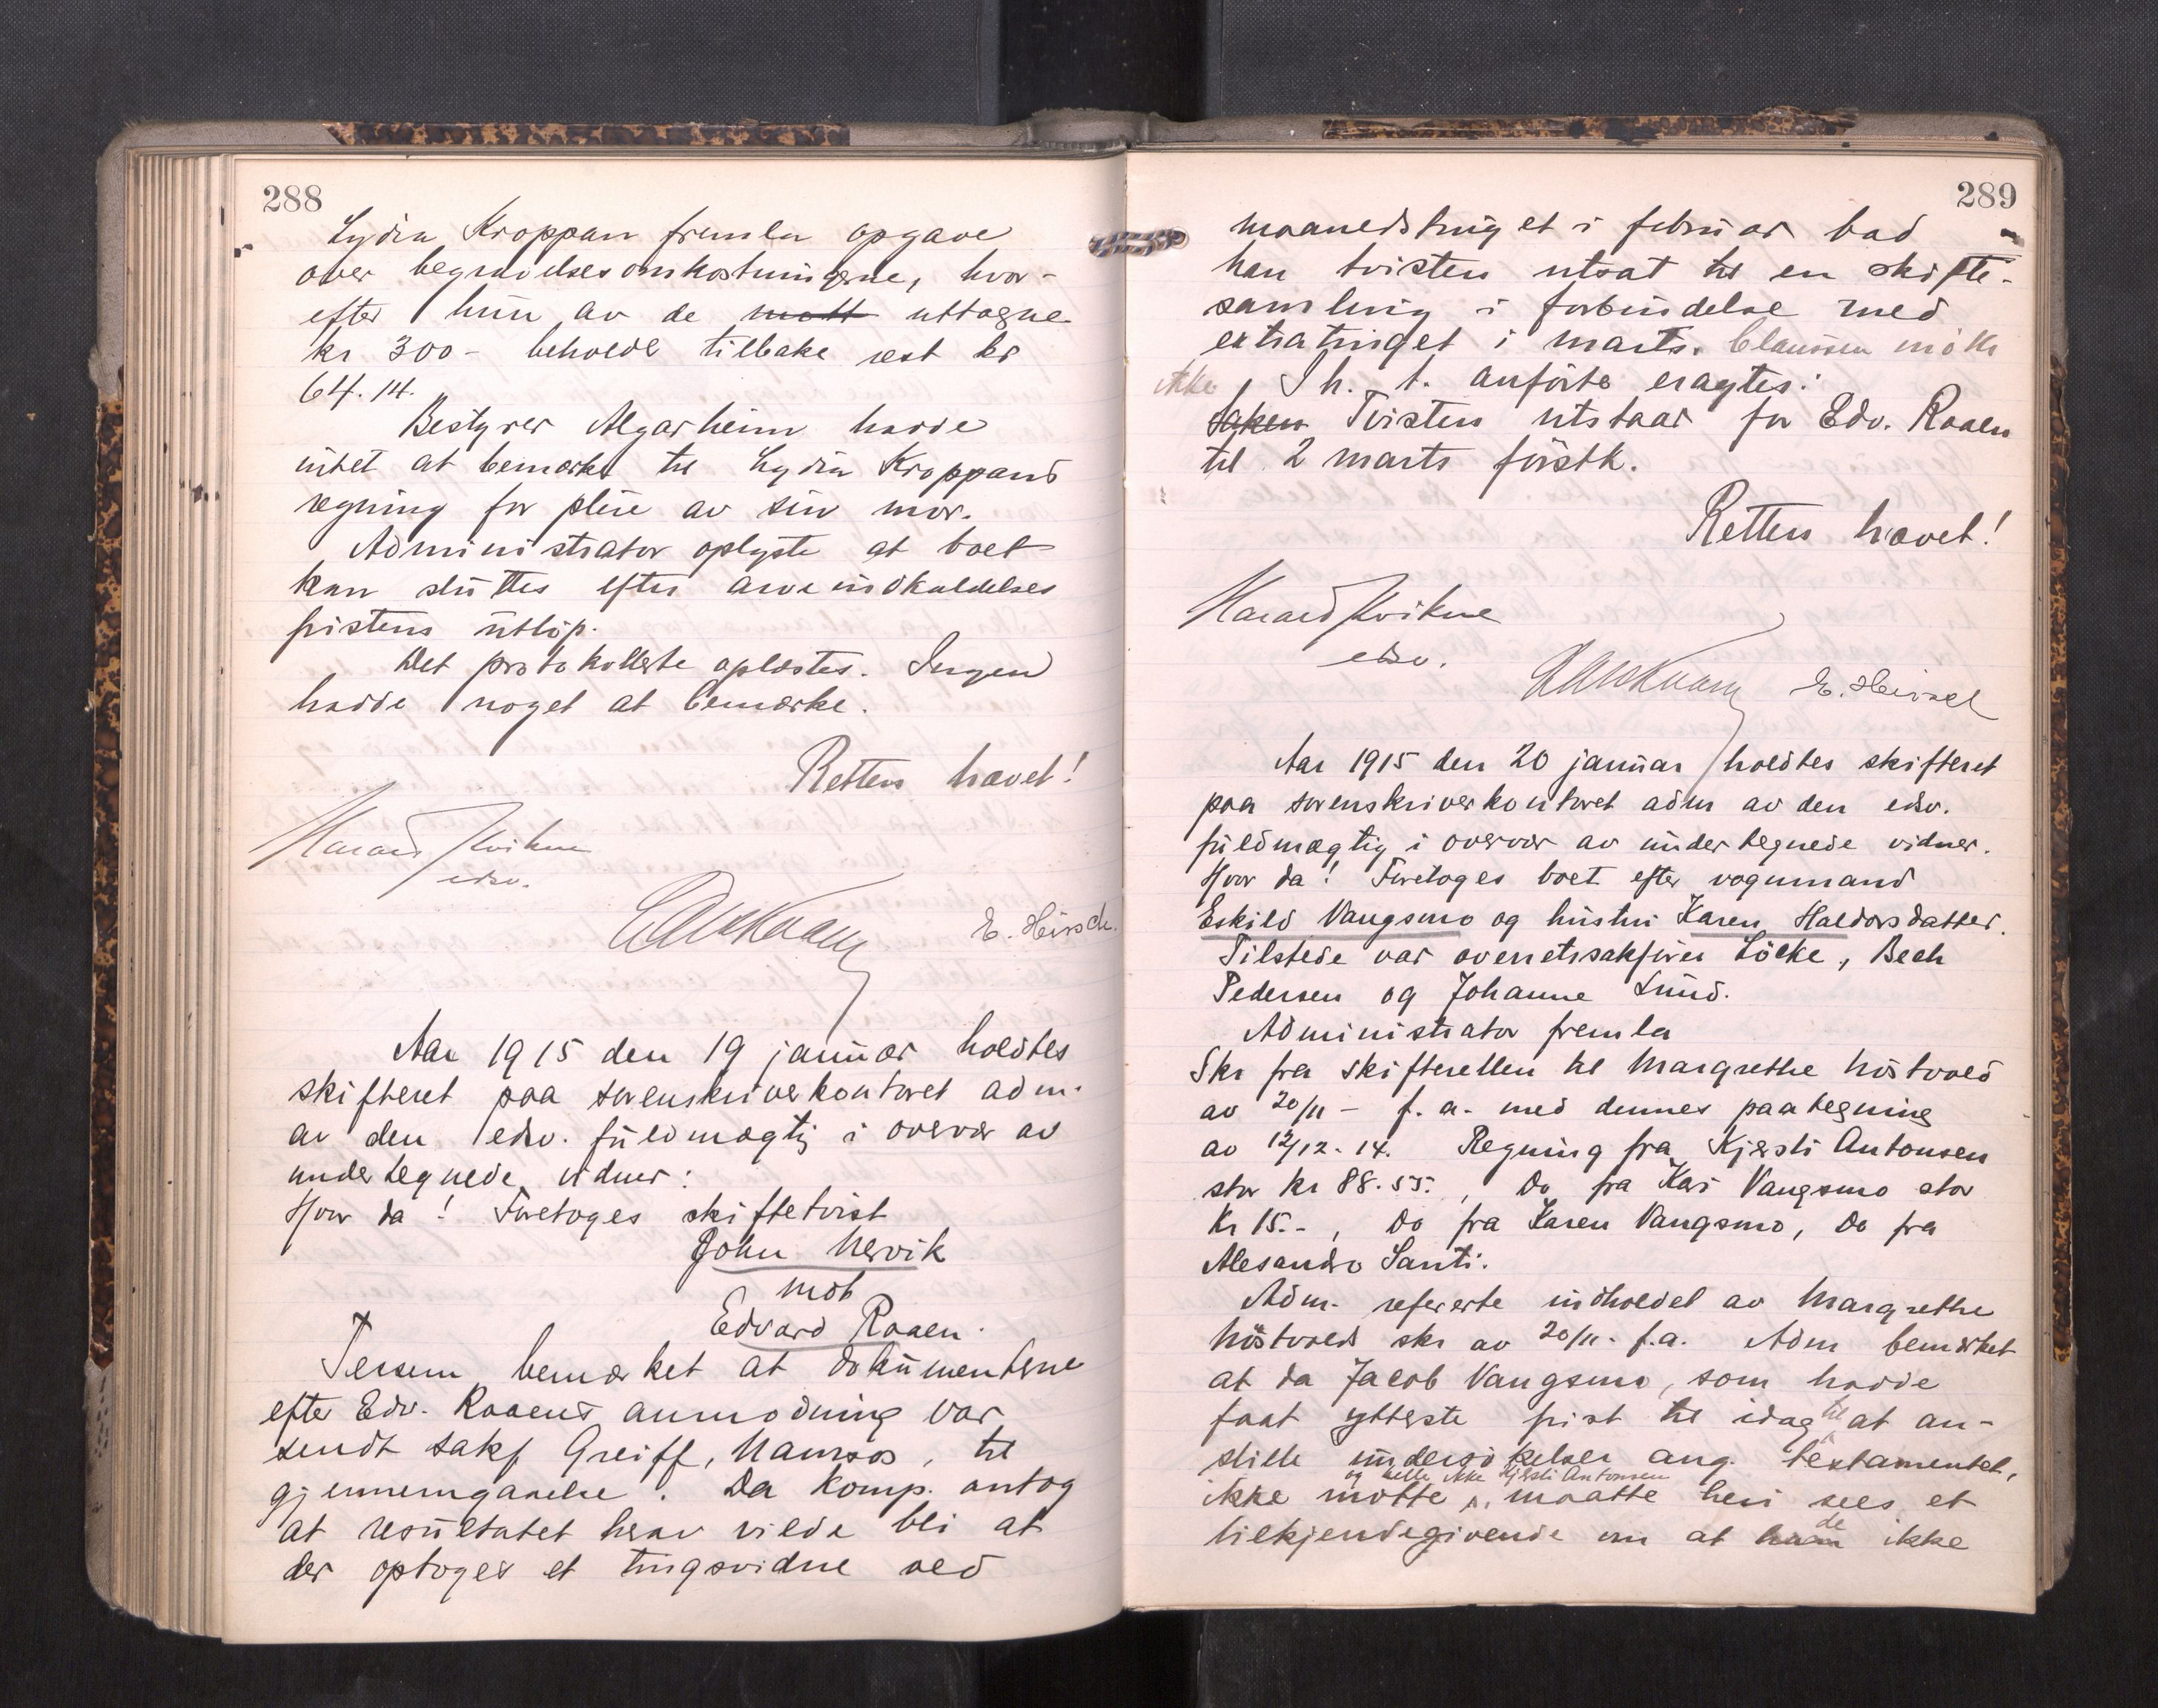 288
Lydia Kroppan fremla opgave
over begravelsesomkostningerne, hvor-
efter hun av de mott uttagne
kr 300 - beholdt tilbake rest kr
64.14.
Bestyrer Algarheim havde
intet at bemærke til Lydia Kroppans
regning for pleie av sin mor.
Administrator oplyste at boet
kan sluttes efter arveindkaldelses
fristens utløp.
Det protokollerte oplæstes. Ingen
hadde noget at bemærke.
Retten hævet!
Harald Kvikne
edsv.
E. Hirsch.
Aar 1915 den 19 januar holdtes
skifteret paa sorenskriverkontoret adm.
av den edsv. fuldmægtig i overvær av
undertegnede vidner:
Hvor da! Foretoges skiftetvist
John Nervik
mot
Edvard Raaen.
Tessem bemærket at dokumenterne
efter Edv. Raaens anmodning var
sendt sakf Greiff, Namsos, til
gjennemgaaelse. Da komp. antog
at resultatet herav vilde bli at
der optoges et tingsvidne ved
289
maanedstinget i februar bad
han tvisten utsat til en skifte-
samling i forbindelse med
extratinget i marts. Claussen møtte
ikke
I h. t. anførte eragtes:
Saken Tvisten utstaar for Edv. Raaen
til 2 marts førstk.
Retten hævet!
Harald Kvikne
edsv.
E. Hirsch
Aar 1915 den 20 januar holdtes skifteret
paa sorenskriverkontoret adm av den edsv.
fuldmægtig i overvær av undertegnede vidner.
Hvor da! Foretoges boet efter vognmand
Eskild Vangsmo og hustru Karen Haldorsdatter.
Tilstede var overretssakfører Löcke, Bech
Pedersen og Johanne Lund.
Administrator fremla
Skr fra skifteretten til Margrethe Høstvold
av 20/11 - f. a. med dennes paategning
av 12/12. 14. Regning fra Kjersti Antonsen
stor kr 88.55., Do fra Kari Vangsmo stor
Kr 15.-, Do fra Karen Vangsmo, Do fra
Alesandro Santi.
Adm. refererte indholdet av Margrethe
Høstvolds skr av 20/11. f.a. Adm bemærket
at da Jacob Vangsmo, som hadde
faat ytterste frist til idag til at an-
stille undersøkelser ang. testamentet,
og heller ikke Kjersti Antonsen
ikke møtte, maatte heri sees et
tilkjendegivende om at de ikke